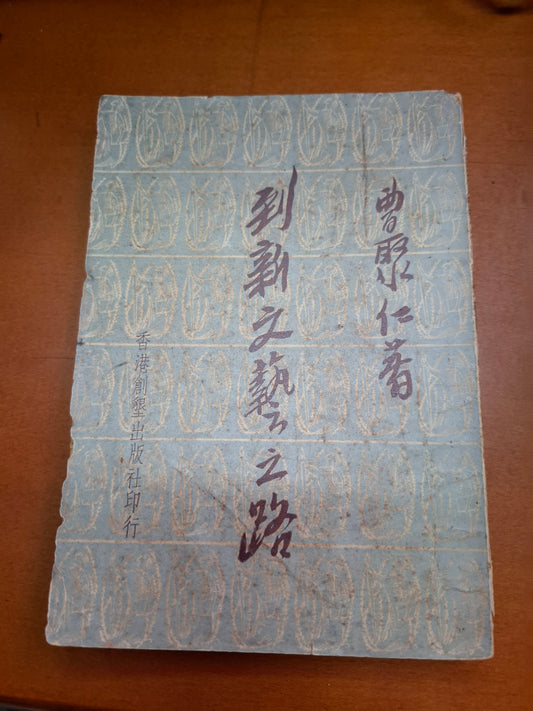 曹聚仁著
到新文藝之路
香港創墾出版社印行